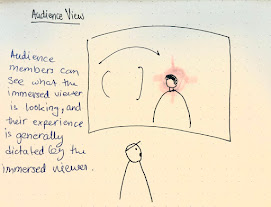 Audience View
Audience
members can
see what the
immersed viewer
is looking, and
their experience
is generally
dictated by the
immersed viewer.